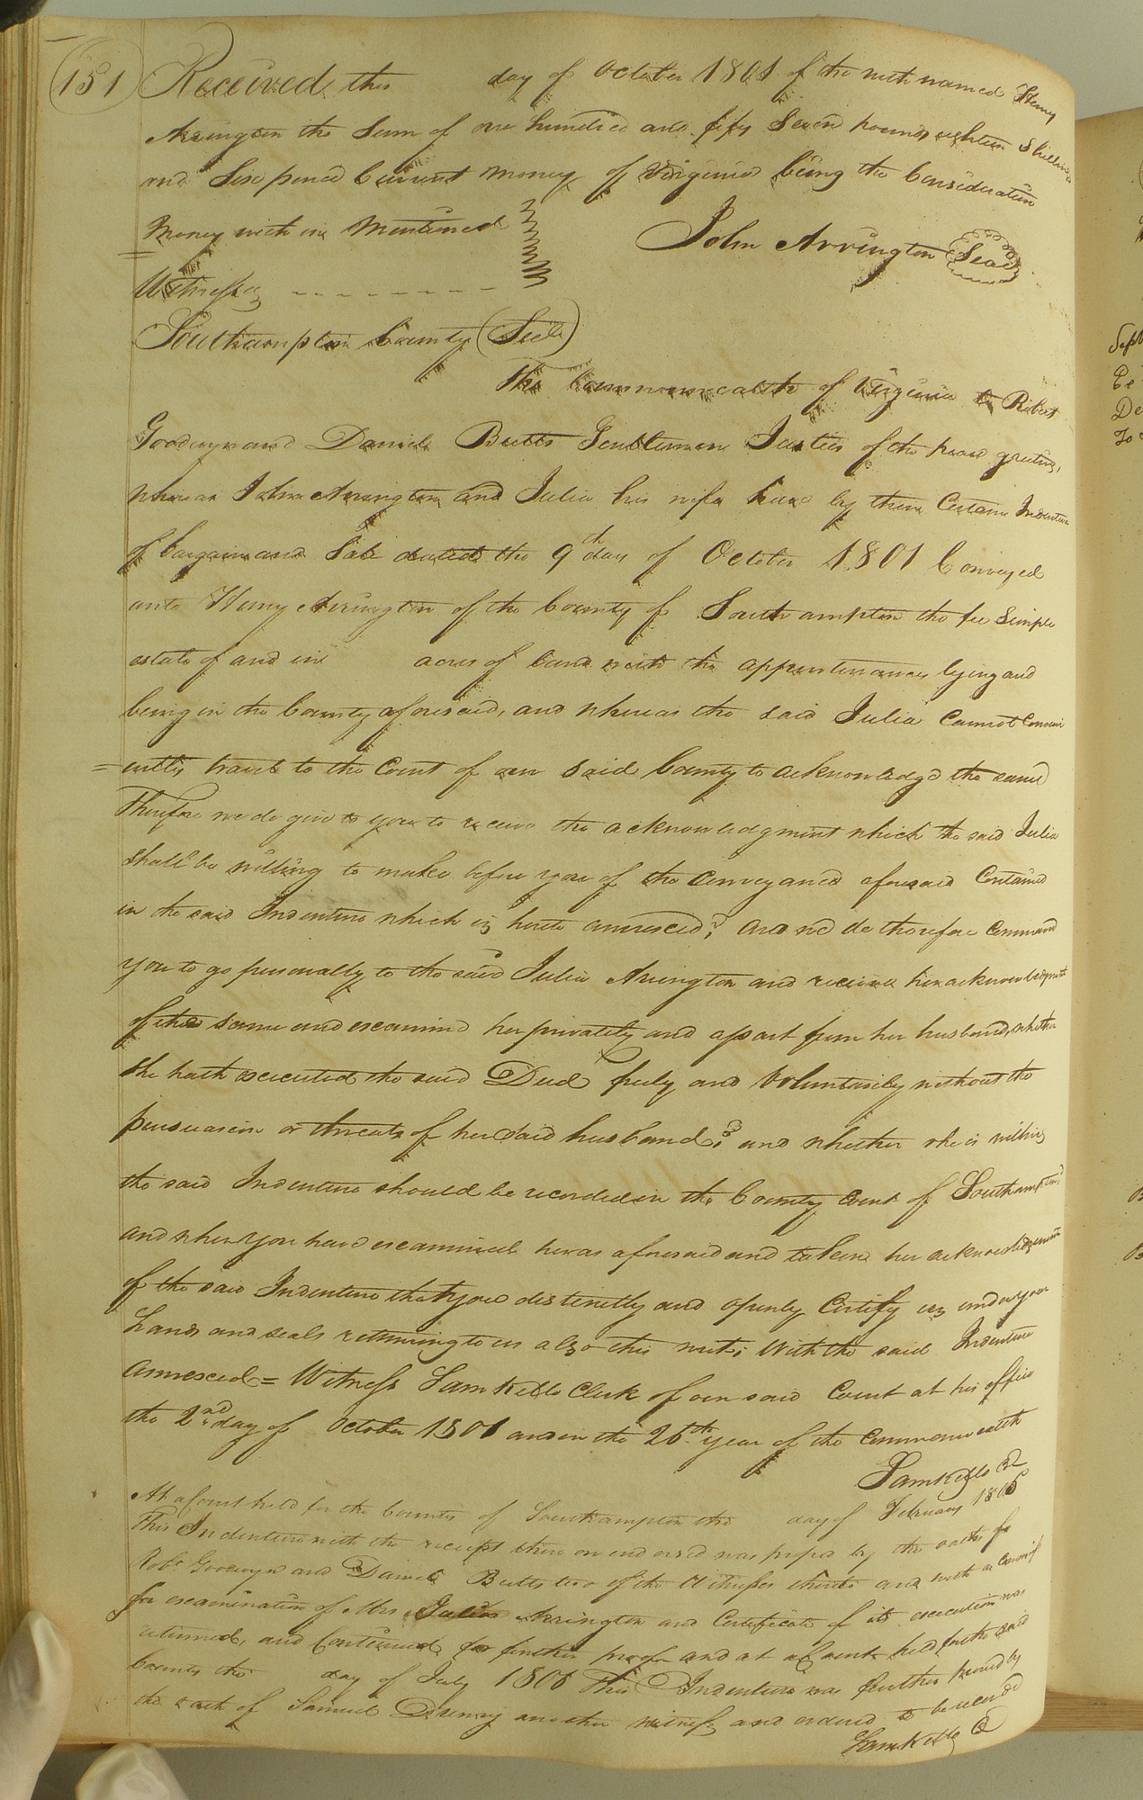 151
Received this day of October 1801 of the with named Henry
Arrington the Sum of one hundred and fifty Seven pounds eighteen Shillings
and Six pence Current money of Virginia being the Consideration
Money with in Mentioned
John Arrington (Seal)
Witness
Southampton County (Sct)
The Commonwealth of Virginia to Robert
Goodwyn and Daniel Butts Gentlemen Justices of the peace greeting,
whereas John Arrington and Julia his wife have by their Certain Indenture
of bargain and Sale dated the 9th day of October 1801 Conveyed
unto Henry Arrington of the County of Southampton the fee Simple
estate of and in acres of Land with the appurtenances lying and
being in the County aforesaid, and whereas the said Julia Cannot Conveni
=ently travel to the Court of our said County to acknowledge the same
Therefore we do give to you to receive the acknowledgment which the said Julia
shall be willing to make before you of the Conveyance aforesaid Contained
in the said Indenture which is hereto annexed; and we do therefore Command
you to go personally to the said Julia Arrington and receive her acknowledgment
of the same and examine her privately and apart from her husband, whether
she hath executed the said Deed freely and Voluntarily without the
persuasion or threats of her said husband; and whether she is willing
the said Indenture should be recorded in the County Court of Southampton
and when you have examined her as aforesaid and taken her acknowledgment
of the said Indenture that you distinctly and openly Certify us under your
hands and seals returning to us also this writ; With the said Indenture
annexed = Witness Sam Kello Clerk of our said Court at his office
the 2nd day of October 1801 and in the 26th year of the Commonwealth
Sam Kello Cl
At a Court held for the County of Southampton the day of February 1806
This Indenture with the receipt there on endorsed was proved by the oaths of
Robt Goodwyn and Daniel Butts two of the Witnesses thereto and with a Commis
for examination of Mrs Julia Arrington and Certificate of its execution was
returned, and Continued for further proof and at a Court held for the said
County the day of July 1806 This Indenture was further proved by
the oath of Samuel Drewry another witness and ordered to be recorded
Sam Kello C
Sept
De
To